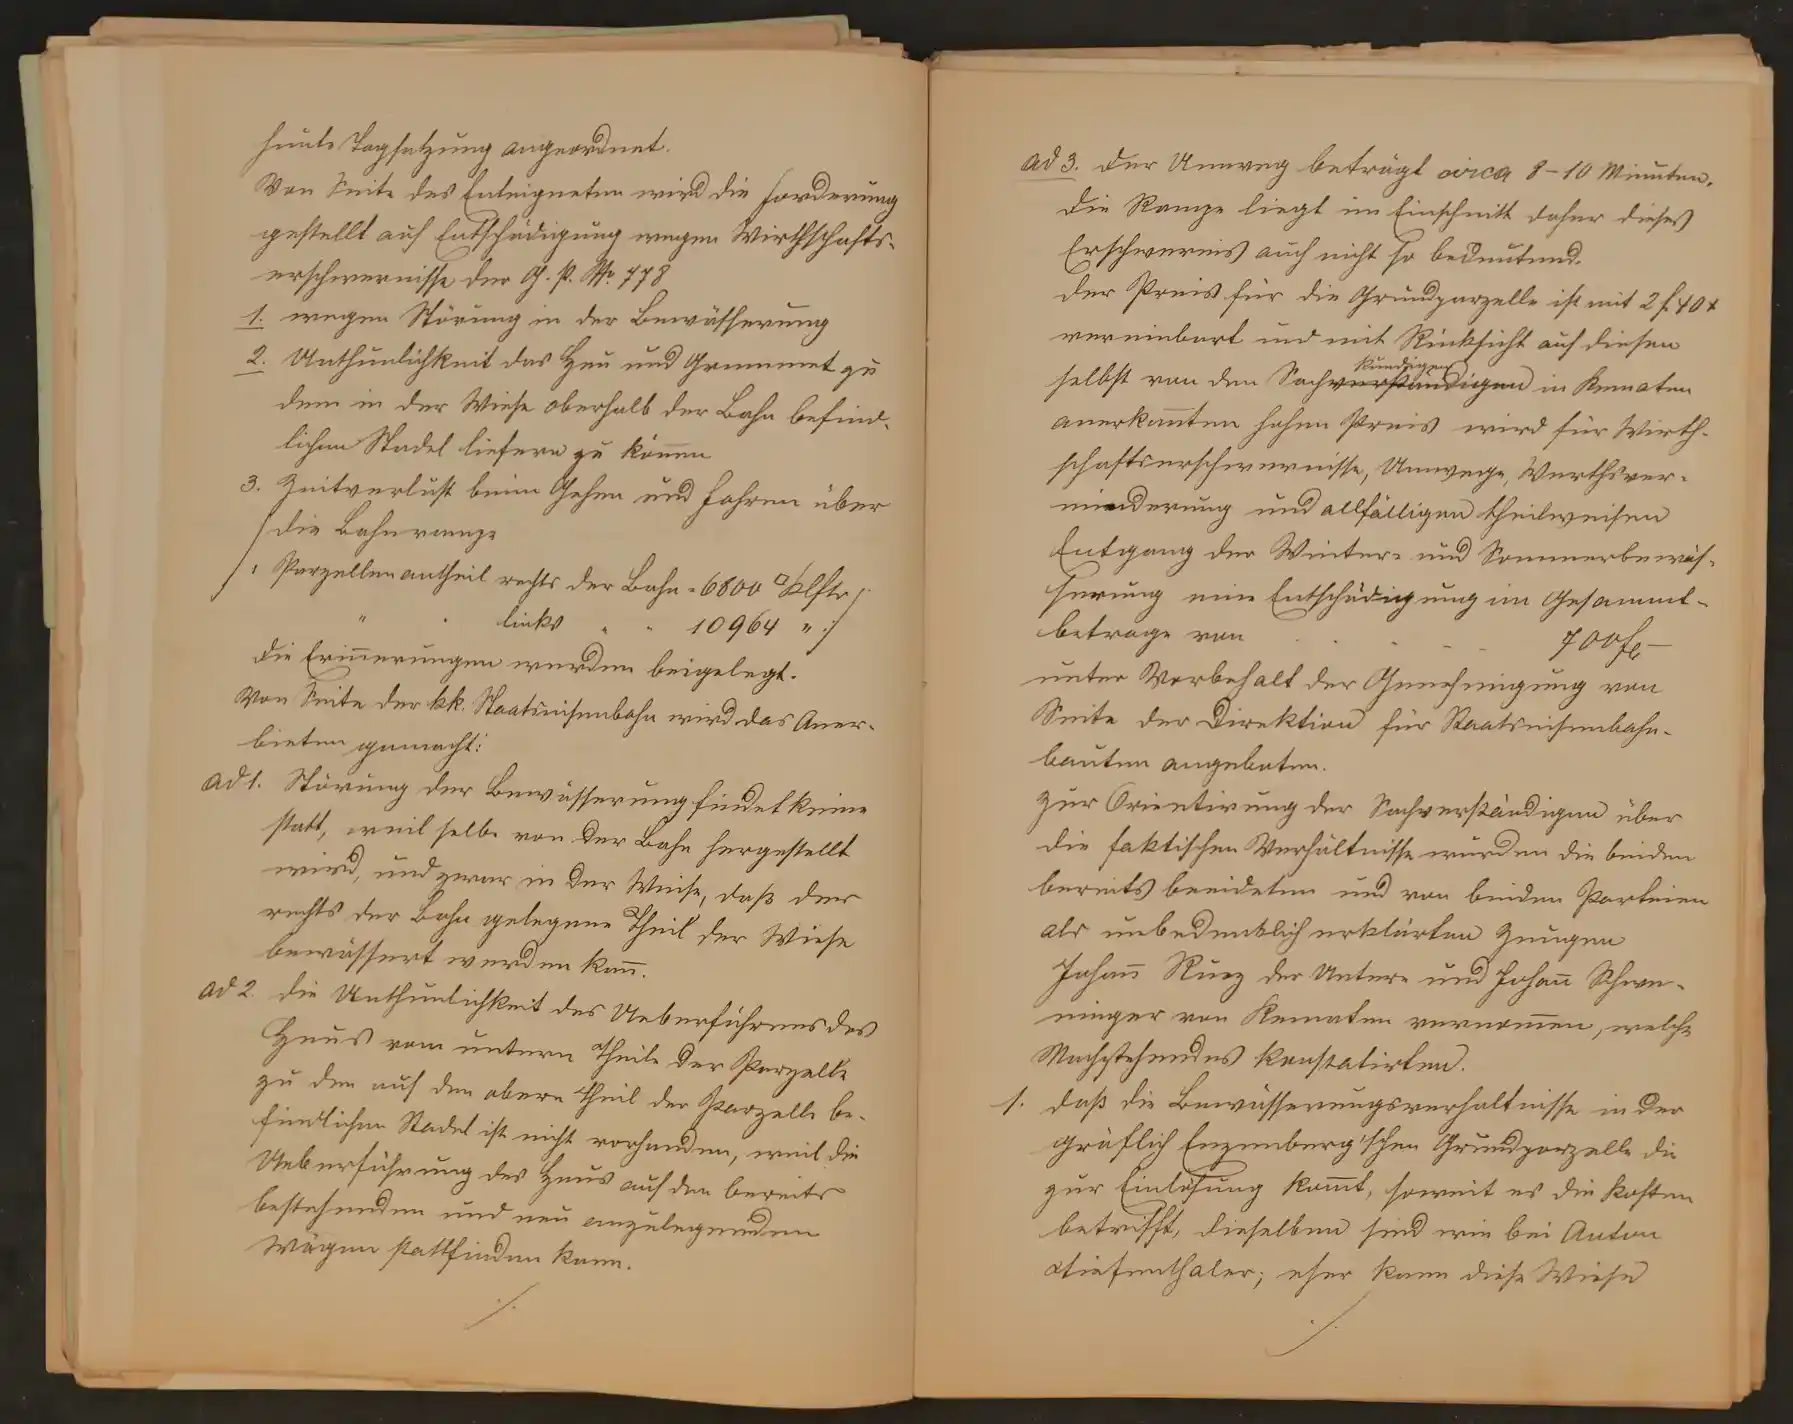 heute Tagsatzung angeordnet.
Von Seite des Enteigneten wird die Forderung
gestellt auf Entschädigung wegen Wirthschafts-
erschwernisse der G. P. No. 778
1. wegen Störung in der Bewässerung
2. Unthunlichkeit das Heu und Grummet zu
dem in der Wiese oberhalb der Bahn befind-
lichen Stadel liefern zu können
3. Zeitverlust beim Gehen und Fahren über
die Bahnrampe
/: Parzellenantheil rechts der Bahn = 6800 □Klftr
" " links " " 10964 " :/
Die Erinnerungen werden beigelegt.
Von Seite der kk. Staatseisenbahn wird das Aner-
bieten gemacht:
ad 1. Störung der Bewässerung findet keine
statt, weil selbe von der Bahn hergestellt
wird, und zwar in der Weise, daß der
rechts der Bahn gelegene Theil der Wiese
bewässert werden kan̄.
ad 2. Die Unthunlichkeit des Ueberführens des
Heues vom untern Theile der Parzelle
zu den auf den obern Theil der Parzelle be-
findlichen Stadel ist nicht vorhanden, weil die
Ueberführung des Heues auf den bereits
bestehenden und neu anzulegenden
Wägen stattfinden kann.
./.
ad 3. Der Umweg beträgt circa 8-10 Minuten.
Die Rampe liegt im Einschnitt daher dieses
Erschwernis auch nicht so bedeutend.
Der Preis für die Grundparzelle ist mit 2 f. 40 x
vereinbart und mit Rücksicht auf diesen
kundigen
selbst von den Sachverständigen in Kematen
anerkan̄ten hohen Preis wird für Wirth-
schaftserschwernisse, Umwege, Werthsver-
minderung und allfälligen theilweisen
Entgang der Winter- und Sommerbewäs-
serung eine Entschädigung im Gesammt-
betrage von . . . - - 700 fl -
unter Vorbehalt der Genehmigung von
Seite der Direktion für Staatseisenbahn-
bauten angeboten.
Zur Orientirung der Sachverständigen über
die faktischen Verhältnisse wurden die beiden
bereits beeideten und von beiden Parteien
als unbedenklich erklärten Zeugen
Johan̄ Ruez der Untere und Johan̄ Schwe-
ninger von Kematen vernom̄en, welche
Nachstehendes konstatirten.
1. daß die Bewässerungsverhältnisse in der
gräflich Enzenberg'schen Grundparzelle die
zur Einlösung kom̄t, soweit es die Kosten
betrifft, dieselben sind wie bei Anton
Tiefenthaler; eher kann diese Wiese
./.